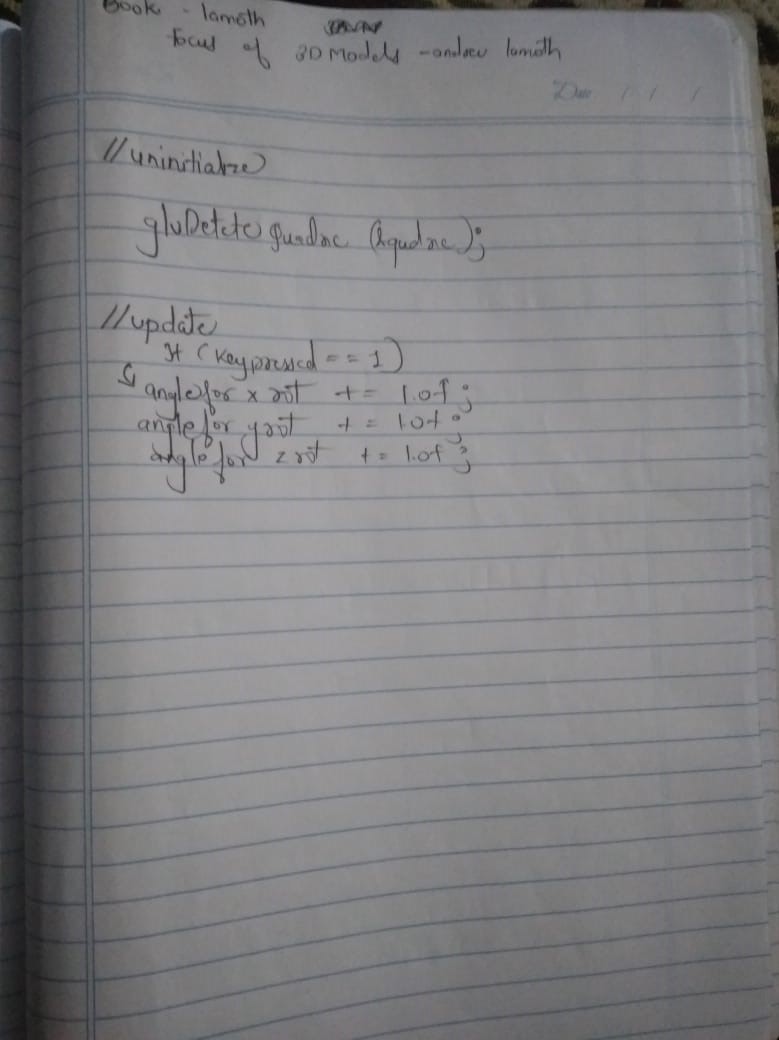 Book - lamoth
focus of 3D Models - andrew lamoth
Date / / /
//uninitialize
gluDelete quadric (&quadric);
//update
If (Keypressed == 1)
{ angle for x rot += 1.0f;
angle for y rot += 1.0f;
angle for z rot += 1.0f;